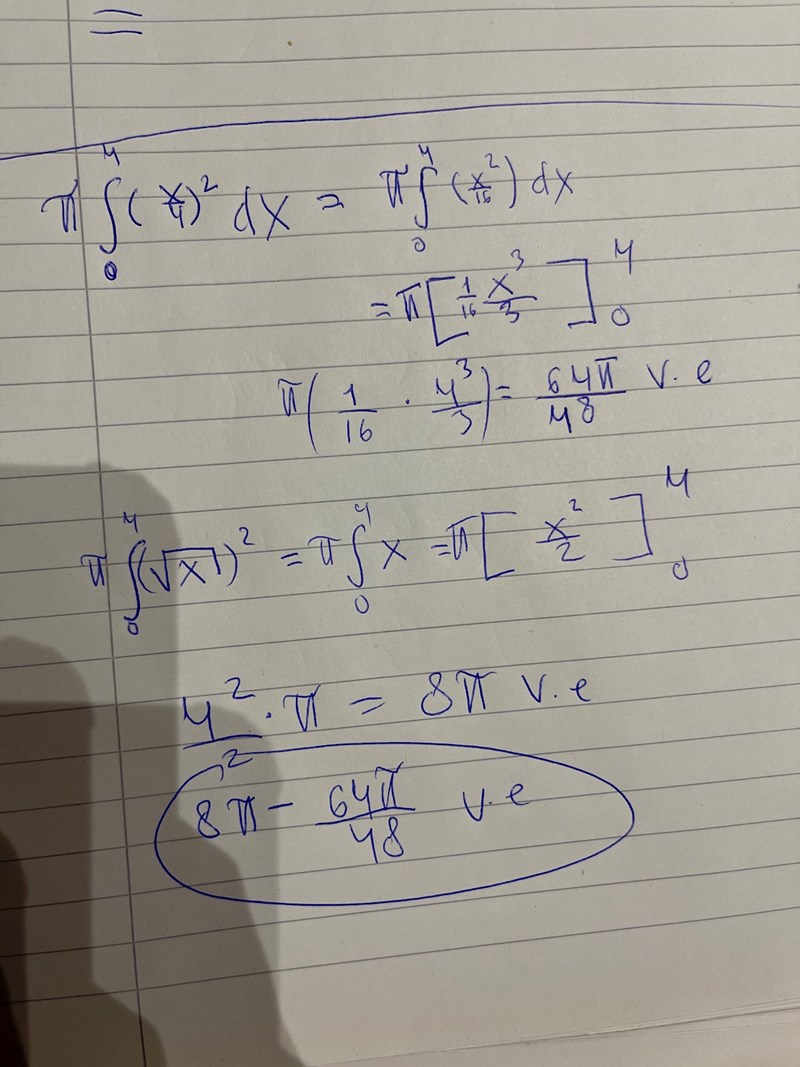 =
π ∫₀⁴ (x/4)² dx = π ∫₀⁴ (x²/16) dx
= π [ 1/16 x³/3 ]₀⁴
π ( 1/16 · 4³/3 ) = 64π/48 v.e
π ∫₀⁴ (√x)² = π ∫₀⁴ x = π [ x²/2 ]₀⁴
4²/2 · π = 8π v.e
8π − 64π/48 v.e